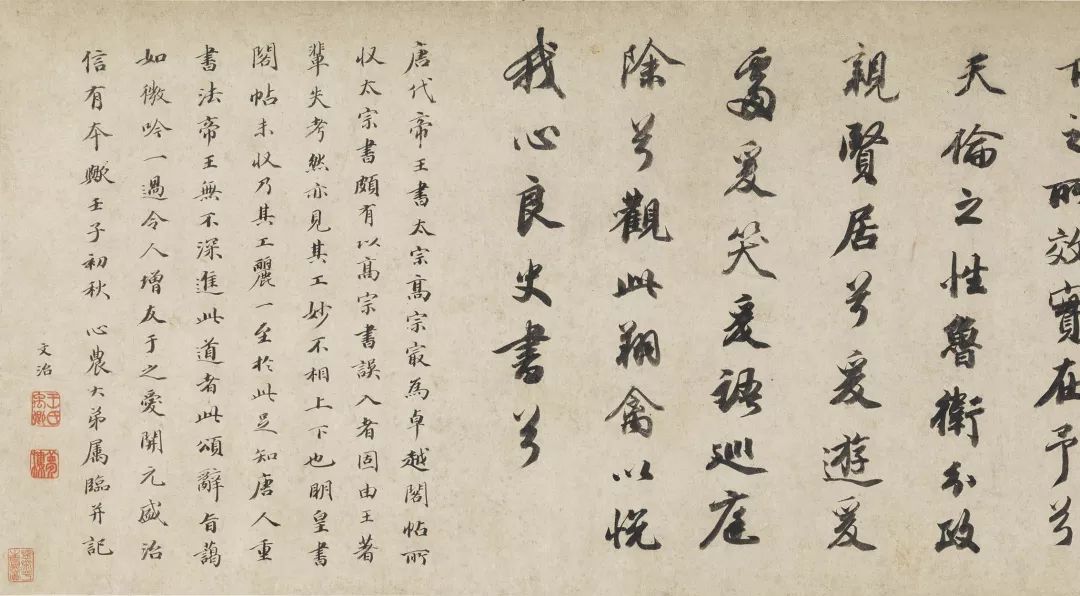 下之所效實在予兮
天倫之性魯衛分政
親賢居兮爰遊爰
處爰笑爰語巡庭
除兮觀此翔禽以悅
我心良史書兮
唐代帝王書太宗高宗冣為卓越閣帖所
收太宗書頗有以高宗書誤入者固由王著
輩失考然亦見其工妙不相上下也明皇書
閣帖未收乃其工麗一至於此足知唐人重
書法帝王無不深進此道者此頌辭旨藹
如微吟一過令人增友于之愛開元盛治
信有本歟壬子初秋 心農大弟属臨并記
文治
王氏禹卿